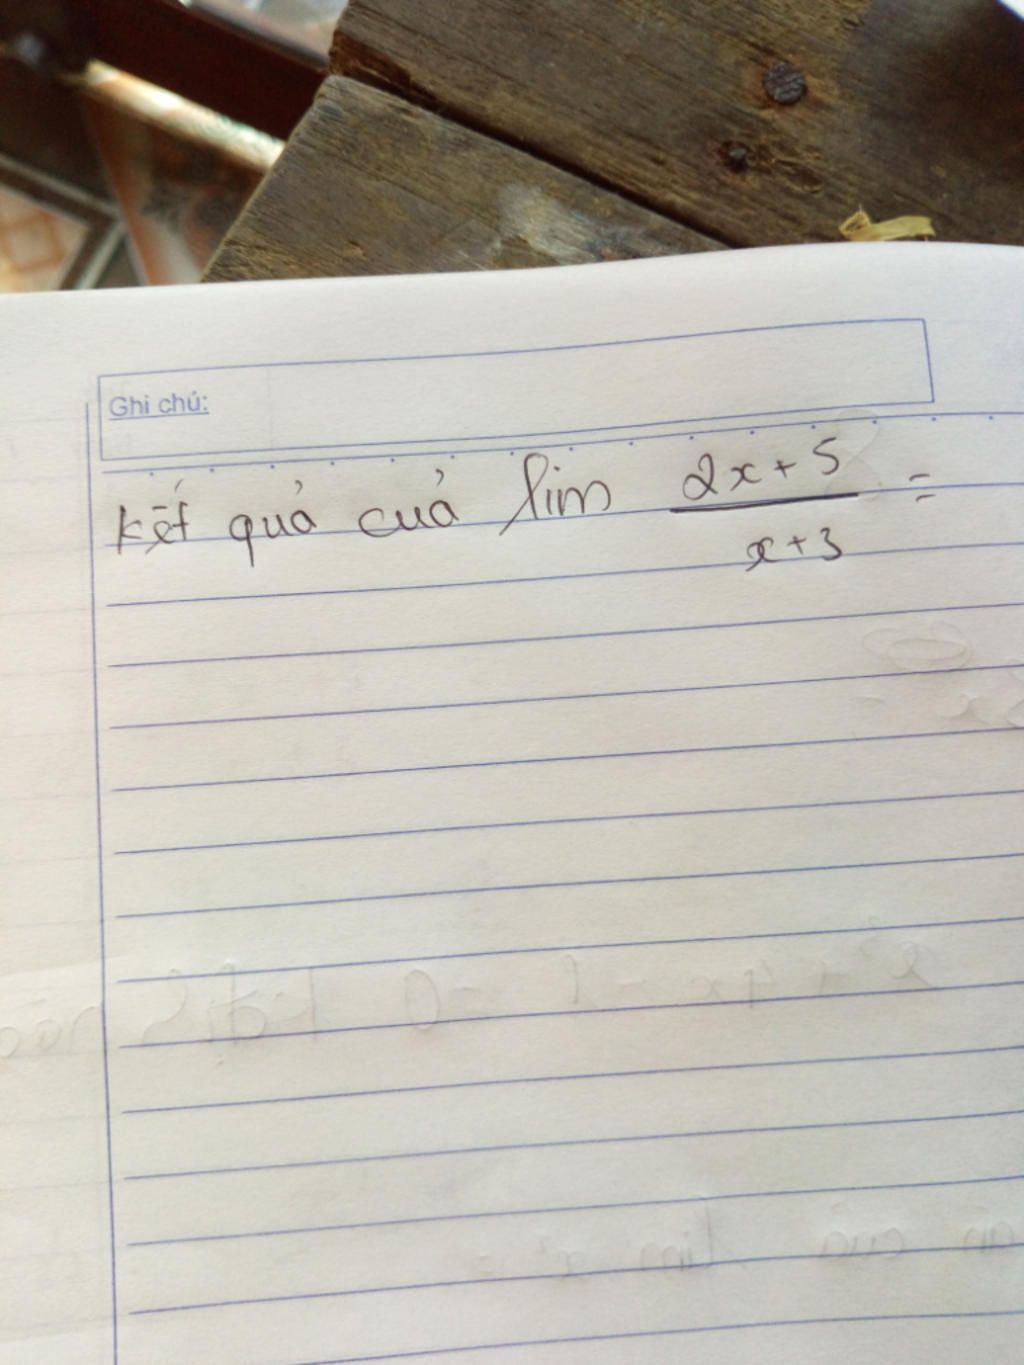 Ghi chú:
kết quả của lim 2x + 5 =
x + 3